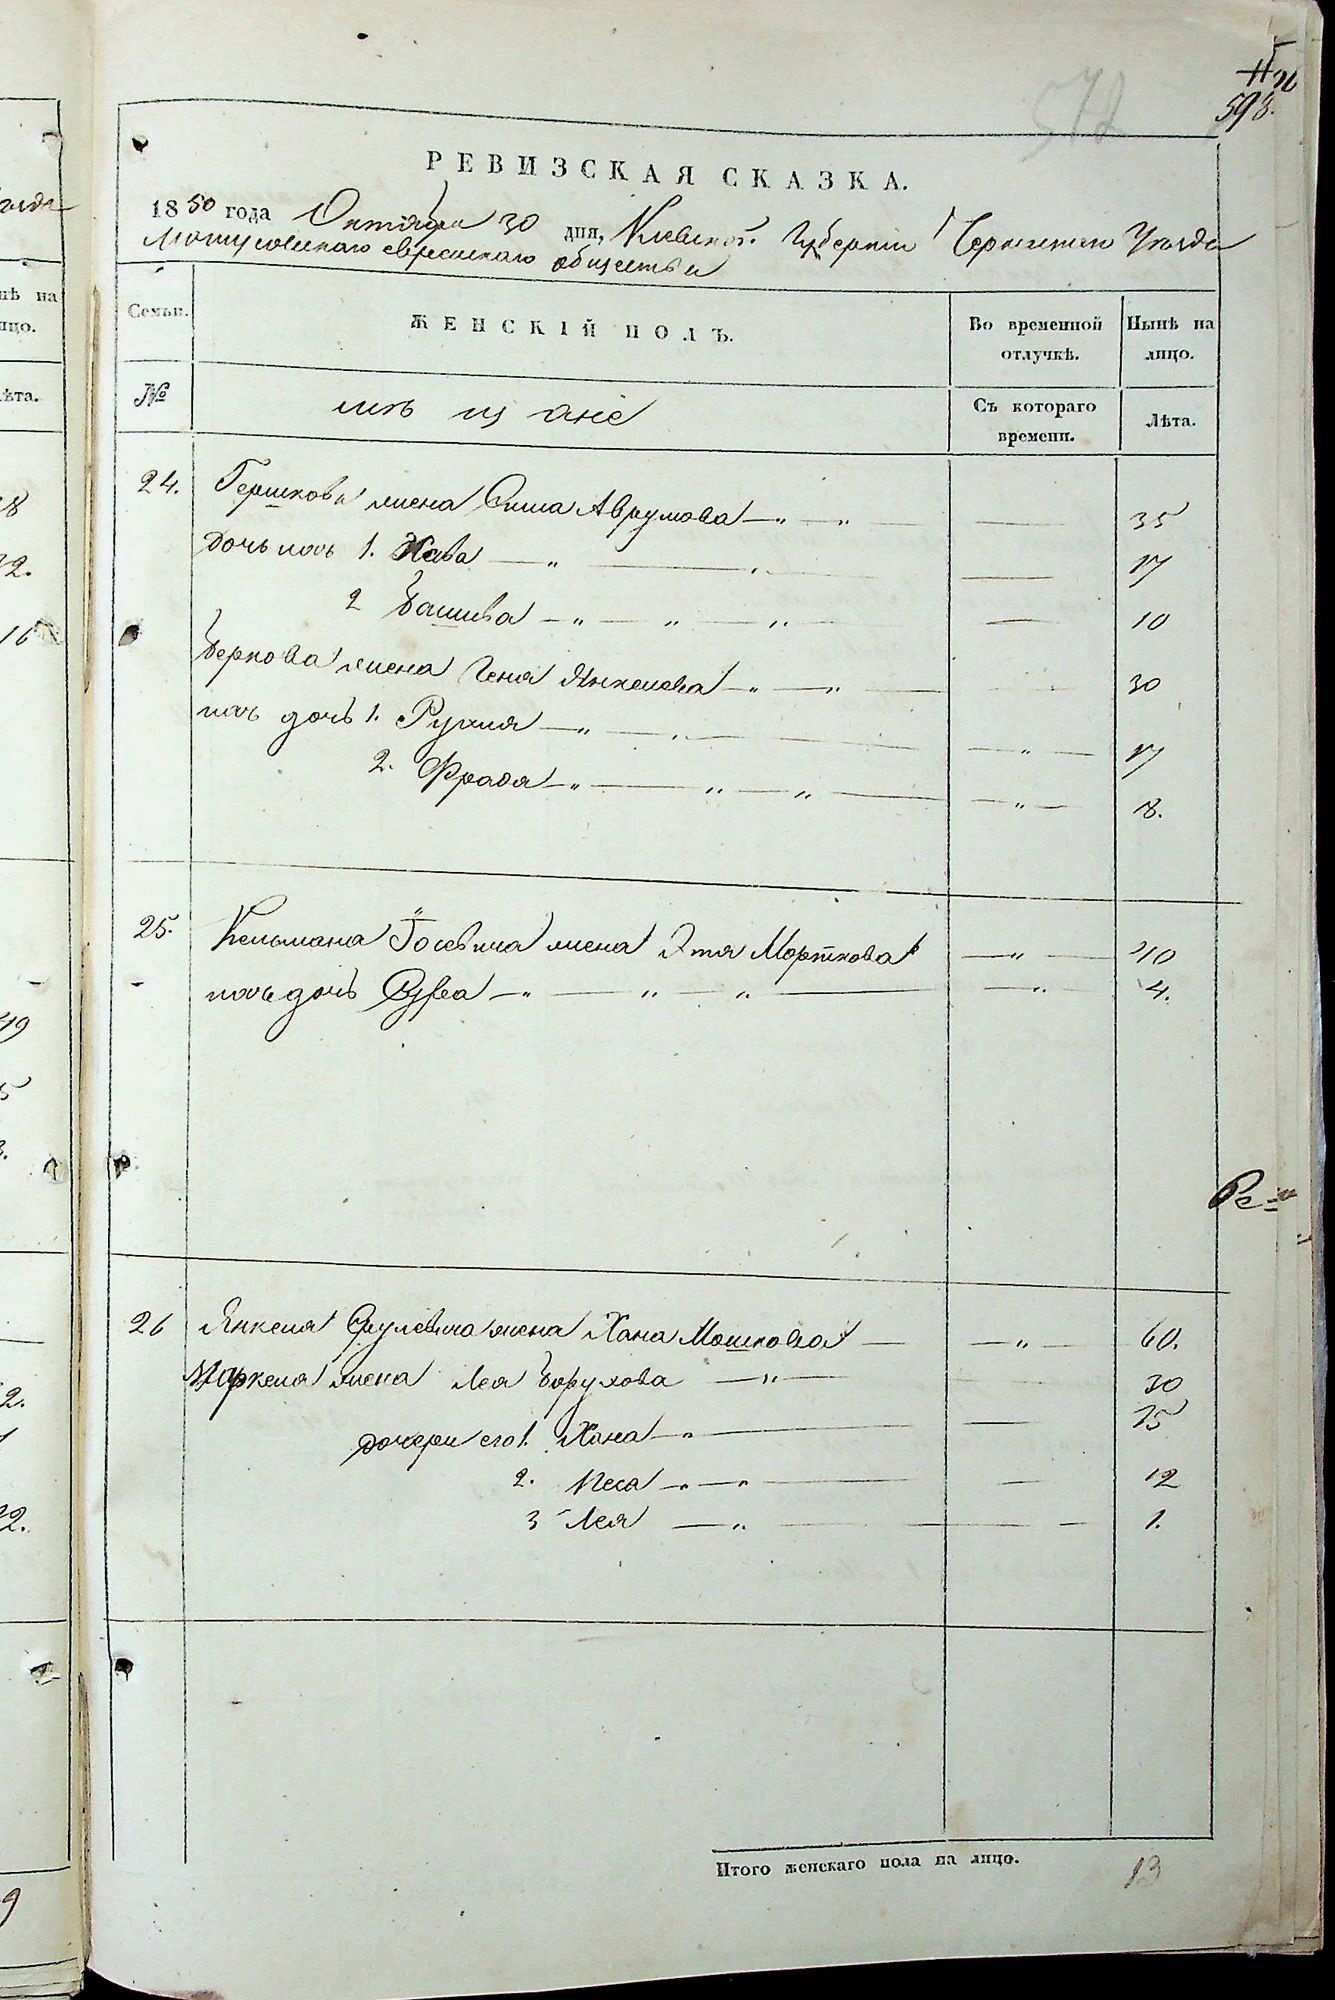 572
598.
РЕВИЗСКАЯ СКАЗКА.
1850 года Октября 30 дня, Киевской Губерніи Черкаскаго Уезда
Мошуровскаго еврейскаго общества
Семьи.
ЖЕНСКІЙ ПОЛЪ.
Во временной отлучкѣ.
Нынѣ на лицо.
№
мѣщане
Съ котораго времени.
Лѣта.
24. Гершкова жена Сима Аврумова — „ — „ — 35
дочь ихъ 1. Хава — „ — „ — 17
2 Башива — „ — „ — „ — 10
Беркова жена Геня Янкелева — „ — „ — 30
ихъ дочь 1. Рухля — „ — „ — „ — 17
2. Фрадя — „ — „ — „ — „ — 8.
25. Кельмана Іосевича жена Этя Морткова — „ — 40
ихъ дочь Сура — „ — „ — „ — „ — 4.
Ре
26 Янкеля Срулевича жена Хана Мошкова — „ — 60.
жена Лея Борухова — „ — 30
дочери его 1. Хана — „ — 15
2. Песа — „ — „ — 12
3 Лея — „ — 1.
Итого женскаго пола на лицо. 13